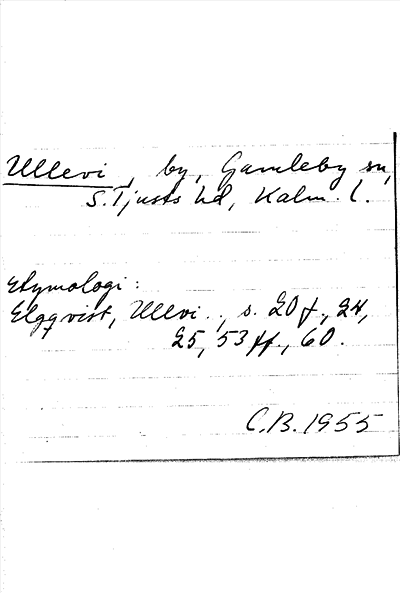 Ullevi, by, Gamleby sn,
S. Tjusts hd, Kalm. l.
Etymologi:
Elgqvist, Ullevi.., s. 20 f., 24,
25, 53 ff., 60.
C.B. 1955